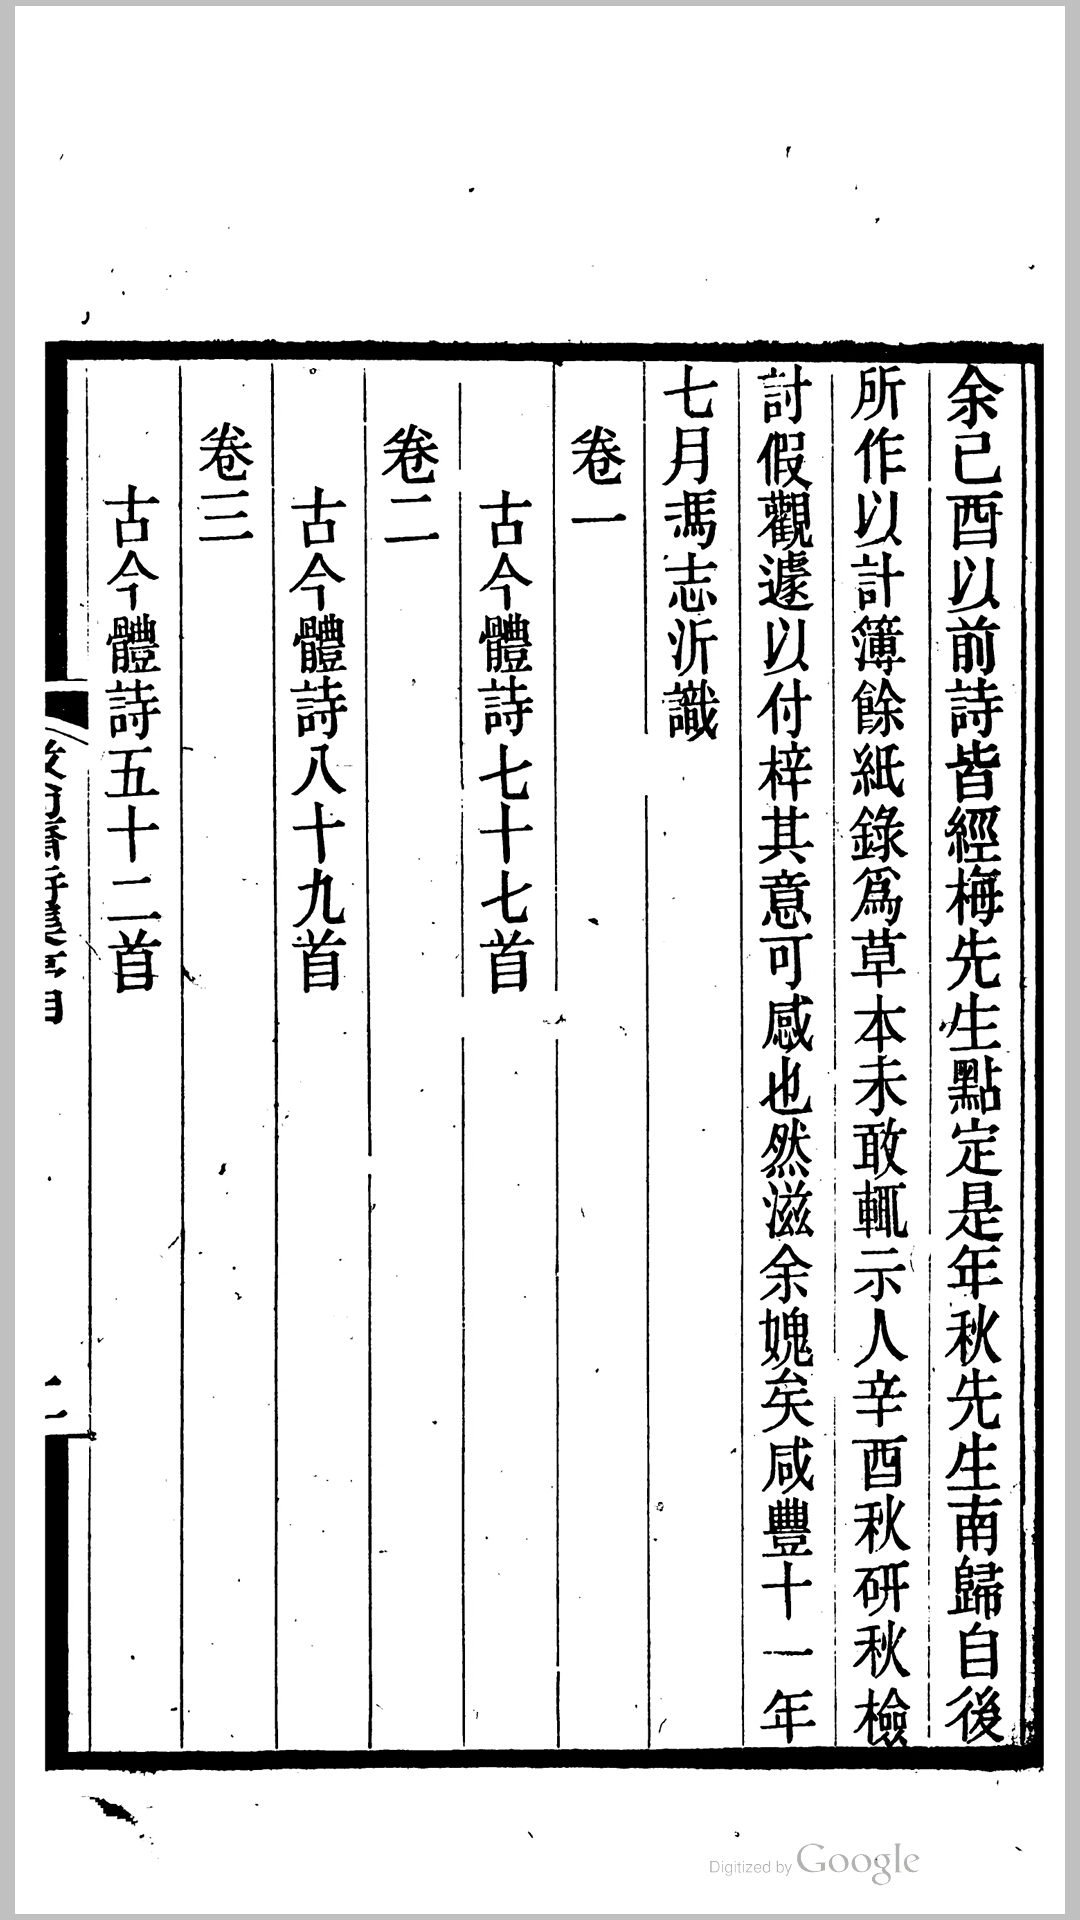 余己酉以前詩皆經梅先生點定是年秋先生南歸自後
所作以計簿餘紙錄爲草本未敢輒示人辛酉秋硏秋檢
討假觀遽以付梓其意可感也然滋余媿矣咸豐十一年
七月馮志沂識
卷一
古今體詩七十七首
卷二
古今體詩八十九首
卷三
古今體詩五十二首
Digitized by Google